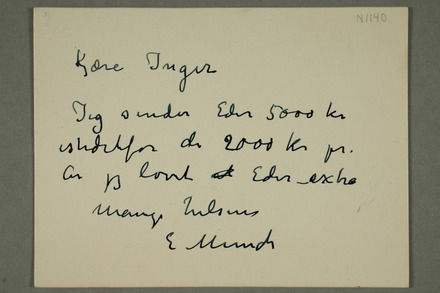 N1140
Kjære Inger
Jeg sender Eder 5000 kr
istedetfor de 2000 kr pr.
Ar jeg lovet Eder extra
Mange hilsener
E Munch